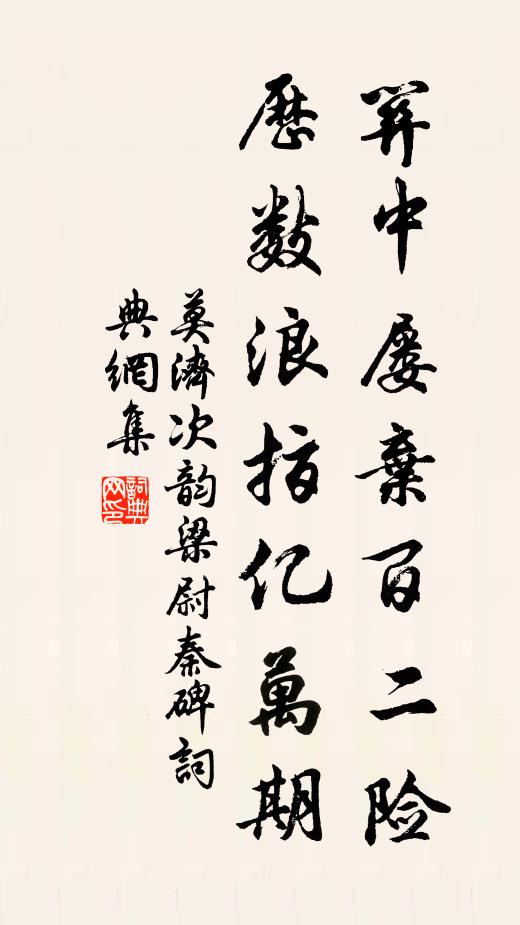 关中屡棄百二险
歷数浪指亿萬期
莫濟次韵梁尉秦碑詞
典網集
詞典网印